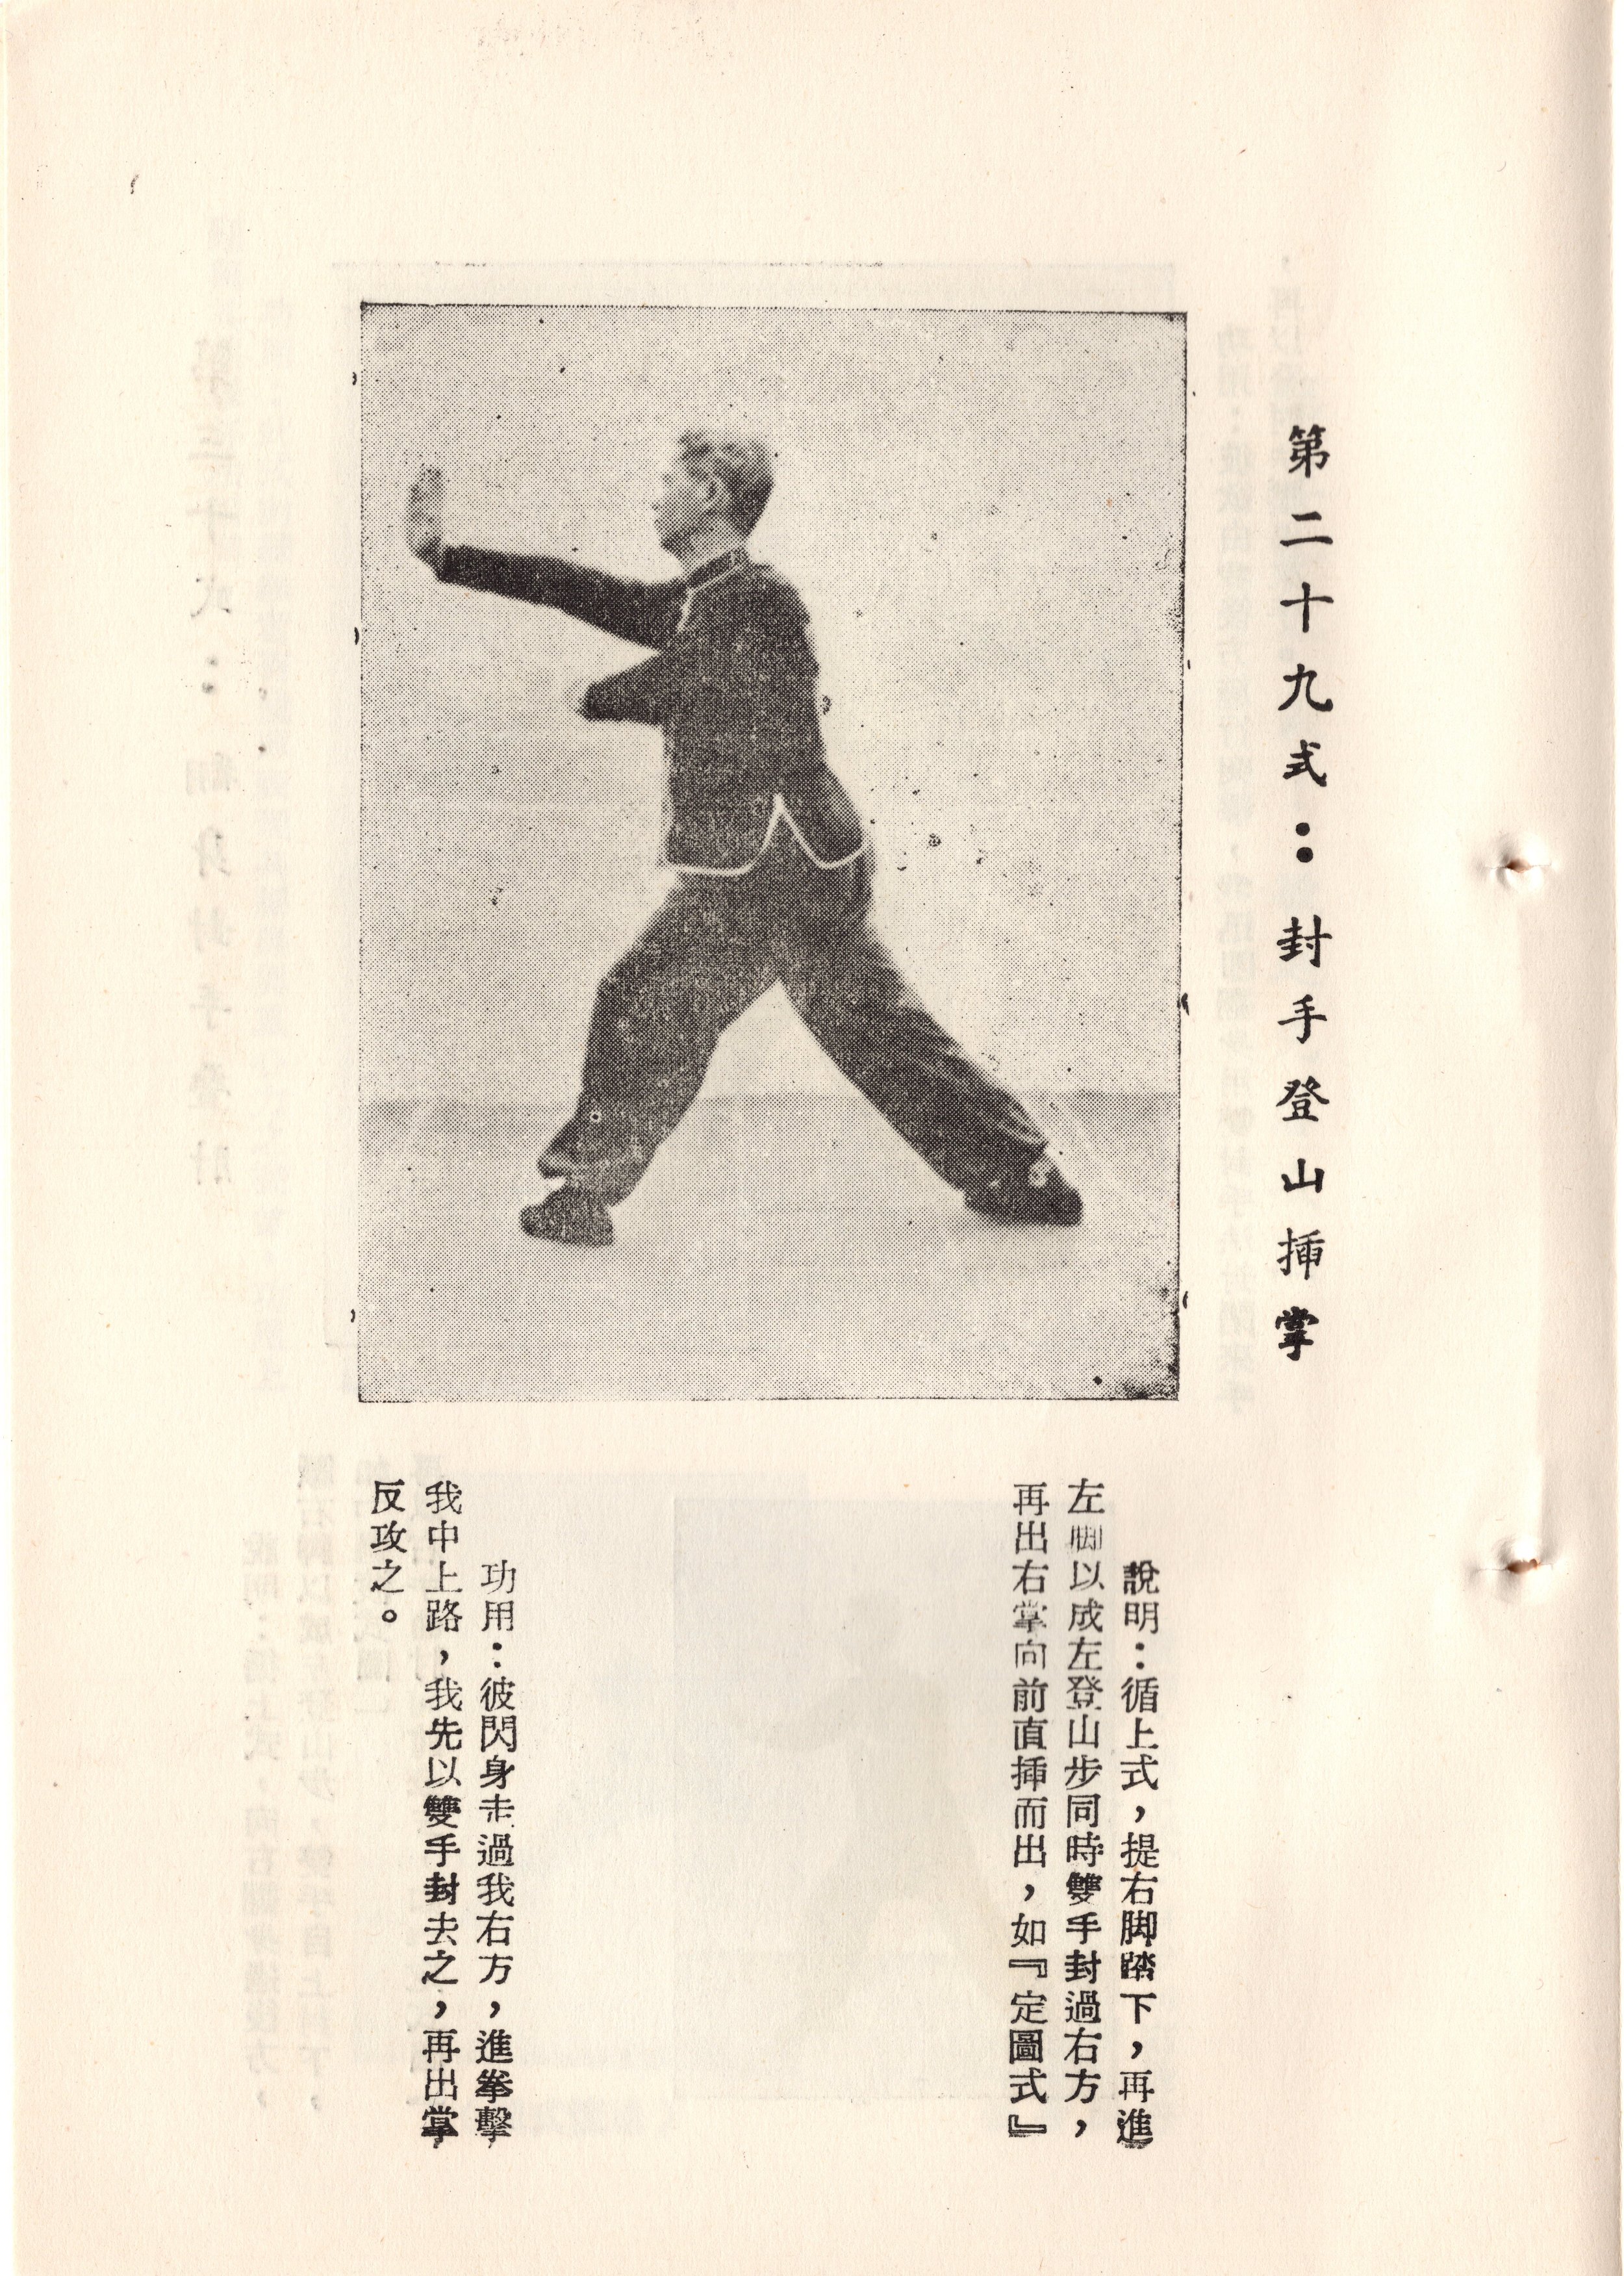 第二十九式：封手登山揷掌
說明：循上式，提右脚踏下，再進
左脚以成左登山步同時雙手封過右方，
再出右掌向前直揷而出，如『定圖式』
功用：彼閃身走過我右方，進拳擊
我中上路，我先以雙手封去之，再出掌
反攻之。